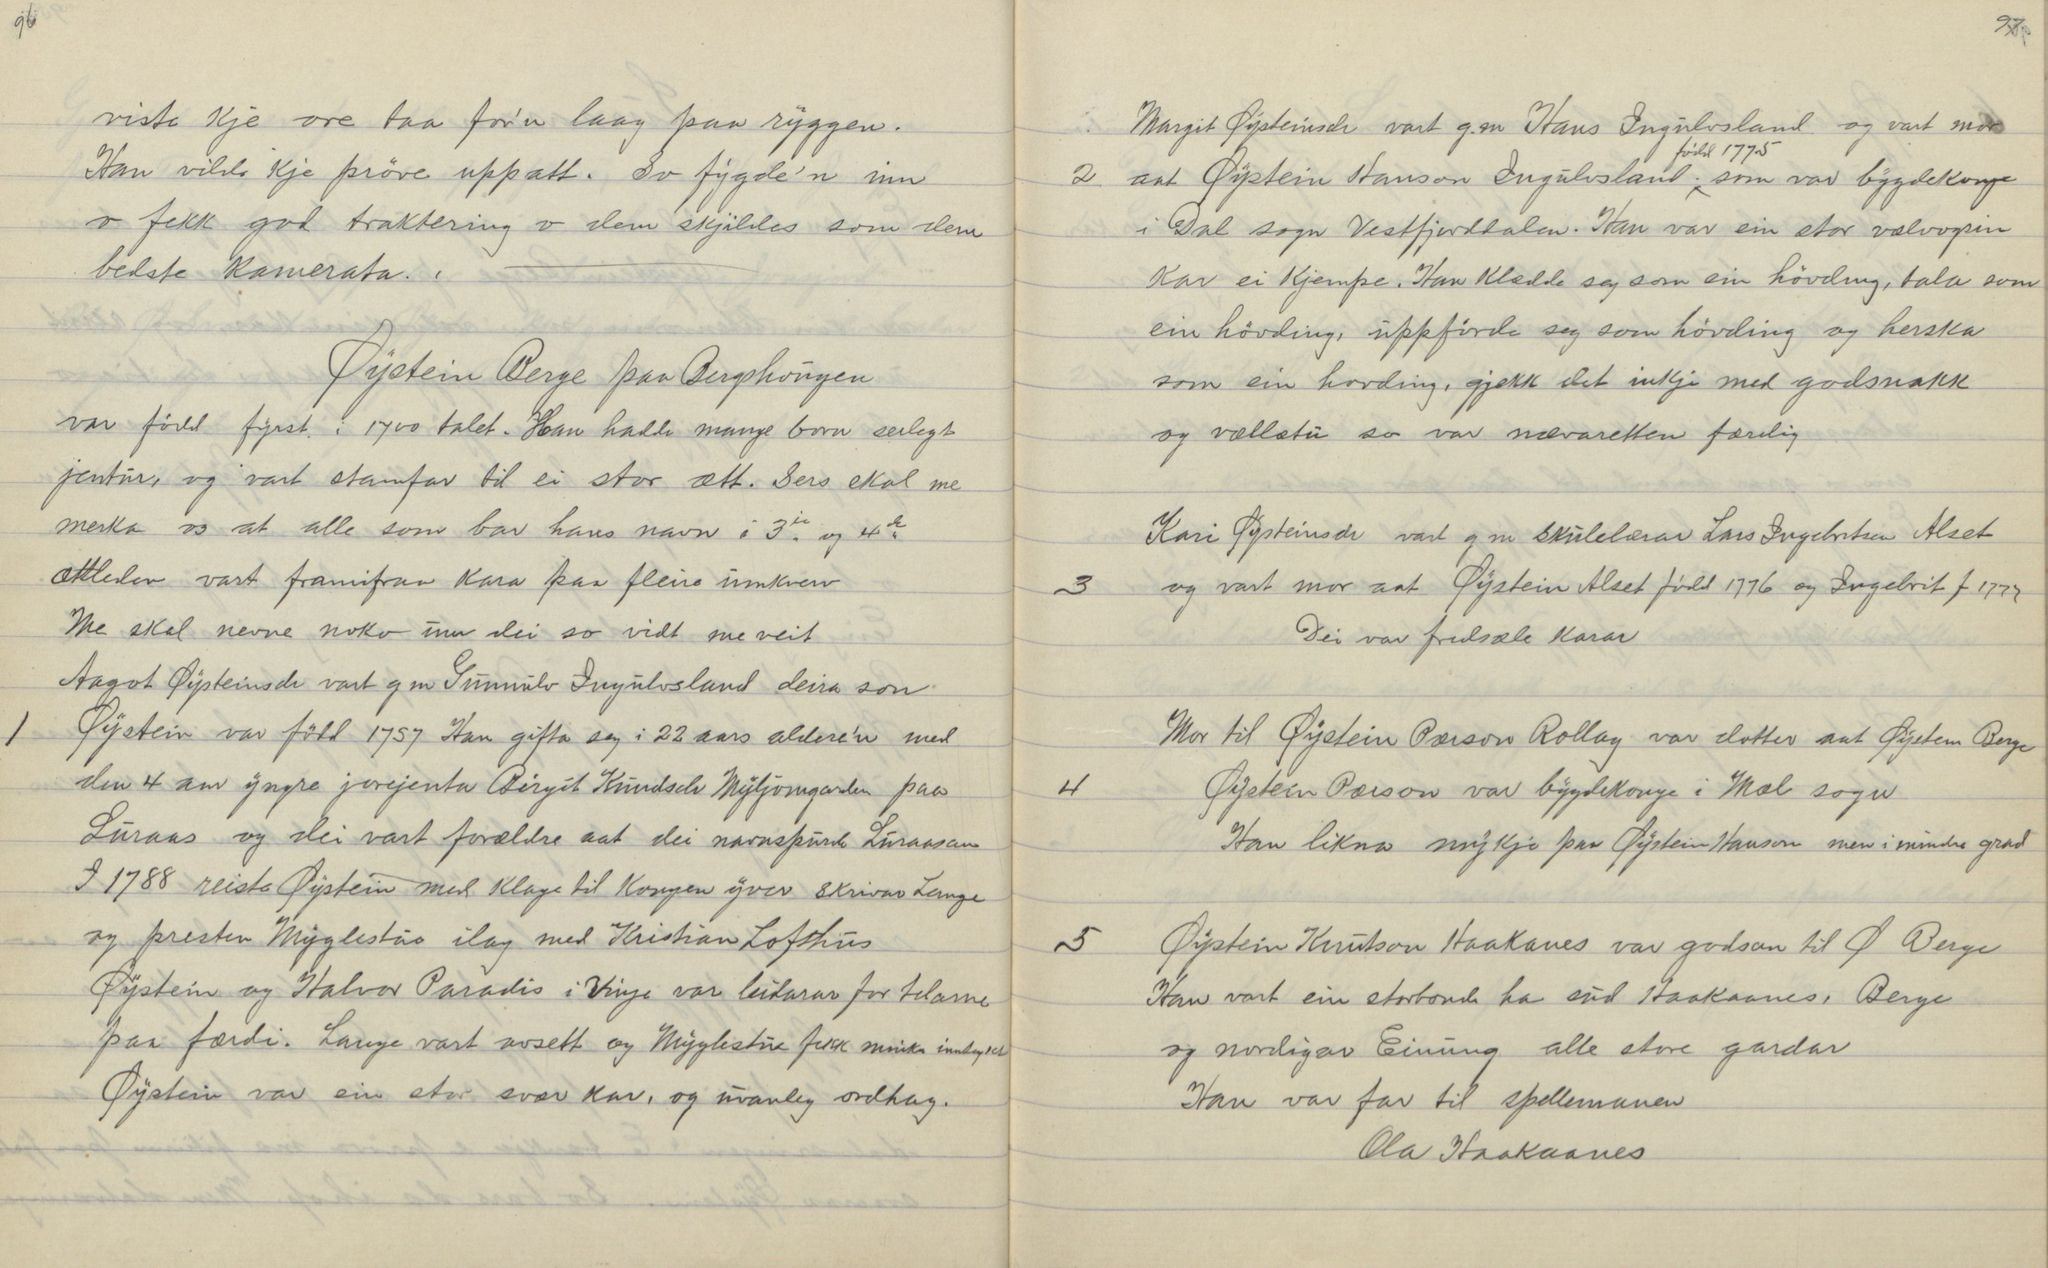 96
viste kje ore taa for'n laag paa ryggen.
Han vilde kje pröve uppatt. So fygde'n inn
o fekk god traktering o dem skjildes som dem
bedste kamerata.
Øystein Berge paa Bergshougen
var född fyrst i 1700 talet. Han hadde mange born serlegt
jentur, og vart stamfar til ei stor ætt. Ders skal me
merka os at alle som bar hans navn i 3je og 4de
ættleden vart framifraa kara paa fleire umkverv
Me skal nevne noko um dei so vidt me veit
Aagot Øysteinsdr vart g m Gunnulv Ingulvsland deira son
1 Øystein var född 1757 Han gifta seg i 22 aars aldere'n med
den 4 aar yngre jorejenta Birgit Knudsdr Myljomgarden paa
Luraas og dei vart forældre aat dei navnspurde Luraasan
I 1788 reiste Øystein med klage til kongen yver skrivar Lange
og presten Myglestue ilag med Kristian Lofthus
Øystein og Halvor Paradis i Vinje var leidarar for telarne
paa færdi. Lange vart avsett og Myglestue fekk minka inntekter
Øystein var ein stor svær kar, og uvanleg ordhag.
97
Margit Øysteinsdr vart g.m Hans Ingulvsland og vart mor
född 1775
2 aat Øystein Hanson Ingulvsland, som var bygdekonge
i Dal sogn Vestfjorddalen. Han var ein stor velvoxin
kar ei kjempe. Han klædde seg som ein hövding, tala som
ein hövding, uppförde seg som hövding og herska
som ein hovding, gjekk det inkje med godsnakk
og vællætu so var nævaretten færdig
Kari Øysteinsdr vart g m skulelærar Lars Ingebretsen Alset
3 og vart mor aat Øystein Alset född 1776 og Ingebrit f 1777
Dei var fredsæle karar
Mor til Øystein Pærson Rollag var dotter aat Øystein Berge
4 Øystein Pærson var bygdekonge i Mæl sogn
Han likna mykje paa Øystein Hanson men i mindre grad
5 Øystein Knutson Haakanes var godson til Ø Berge
Han vart ein storbonde ha sud Haakaanes, Berge
og nordigar Einung alle store gardar
Han var far til spellemanen
Ola Haakaanes